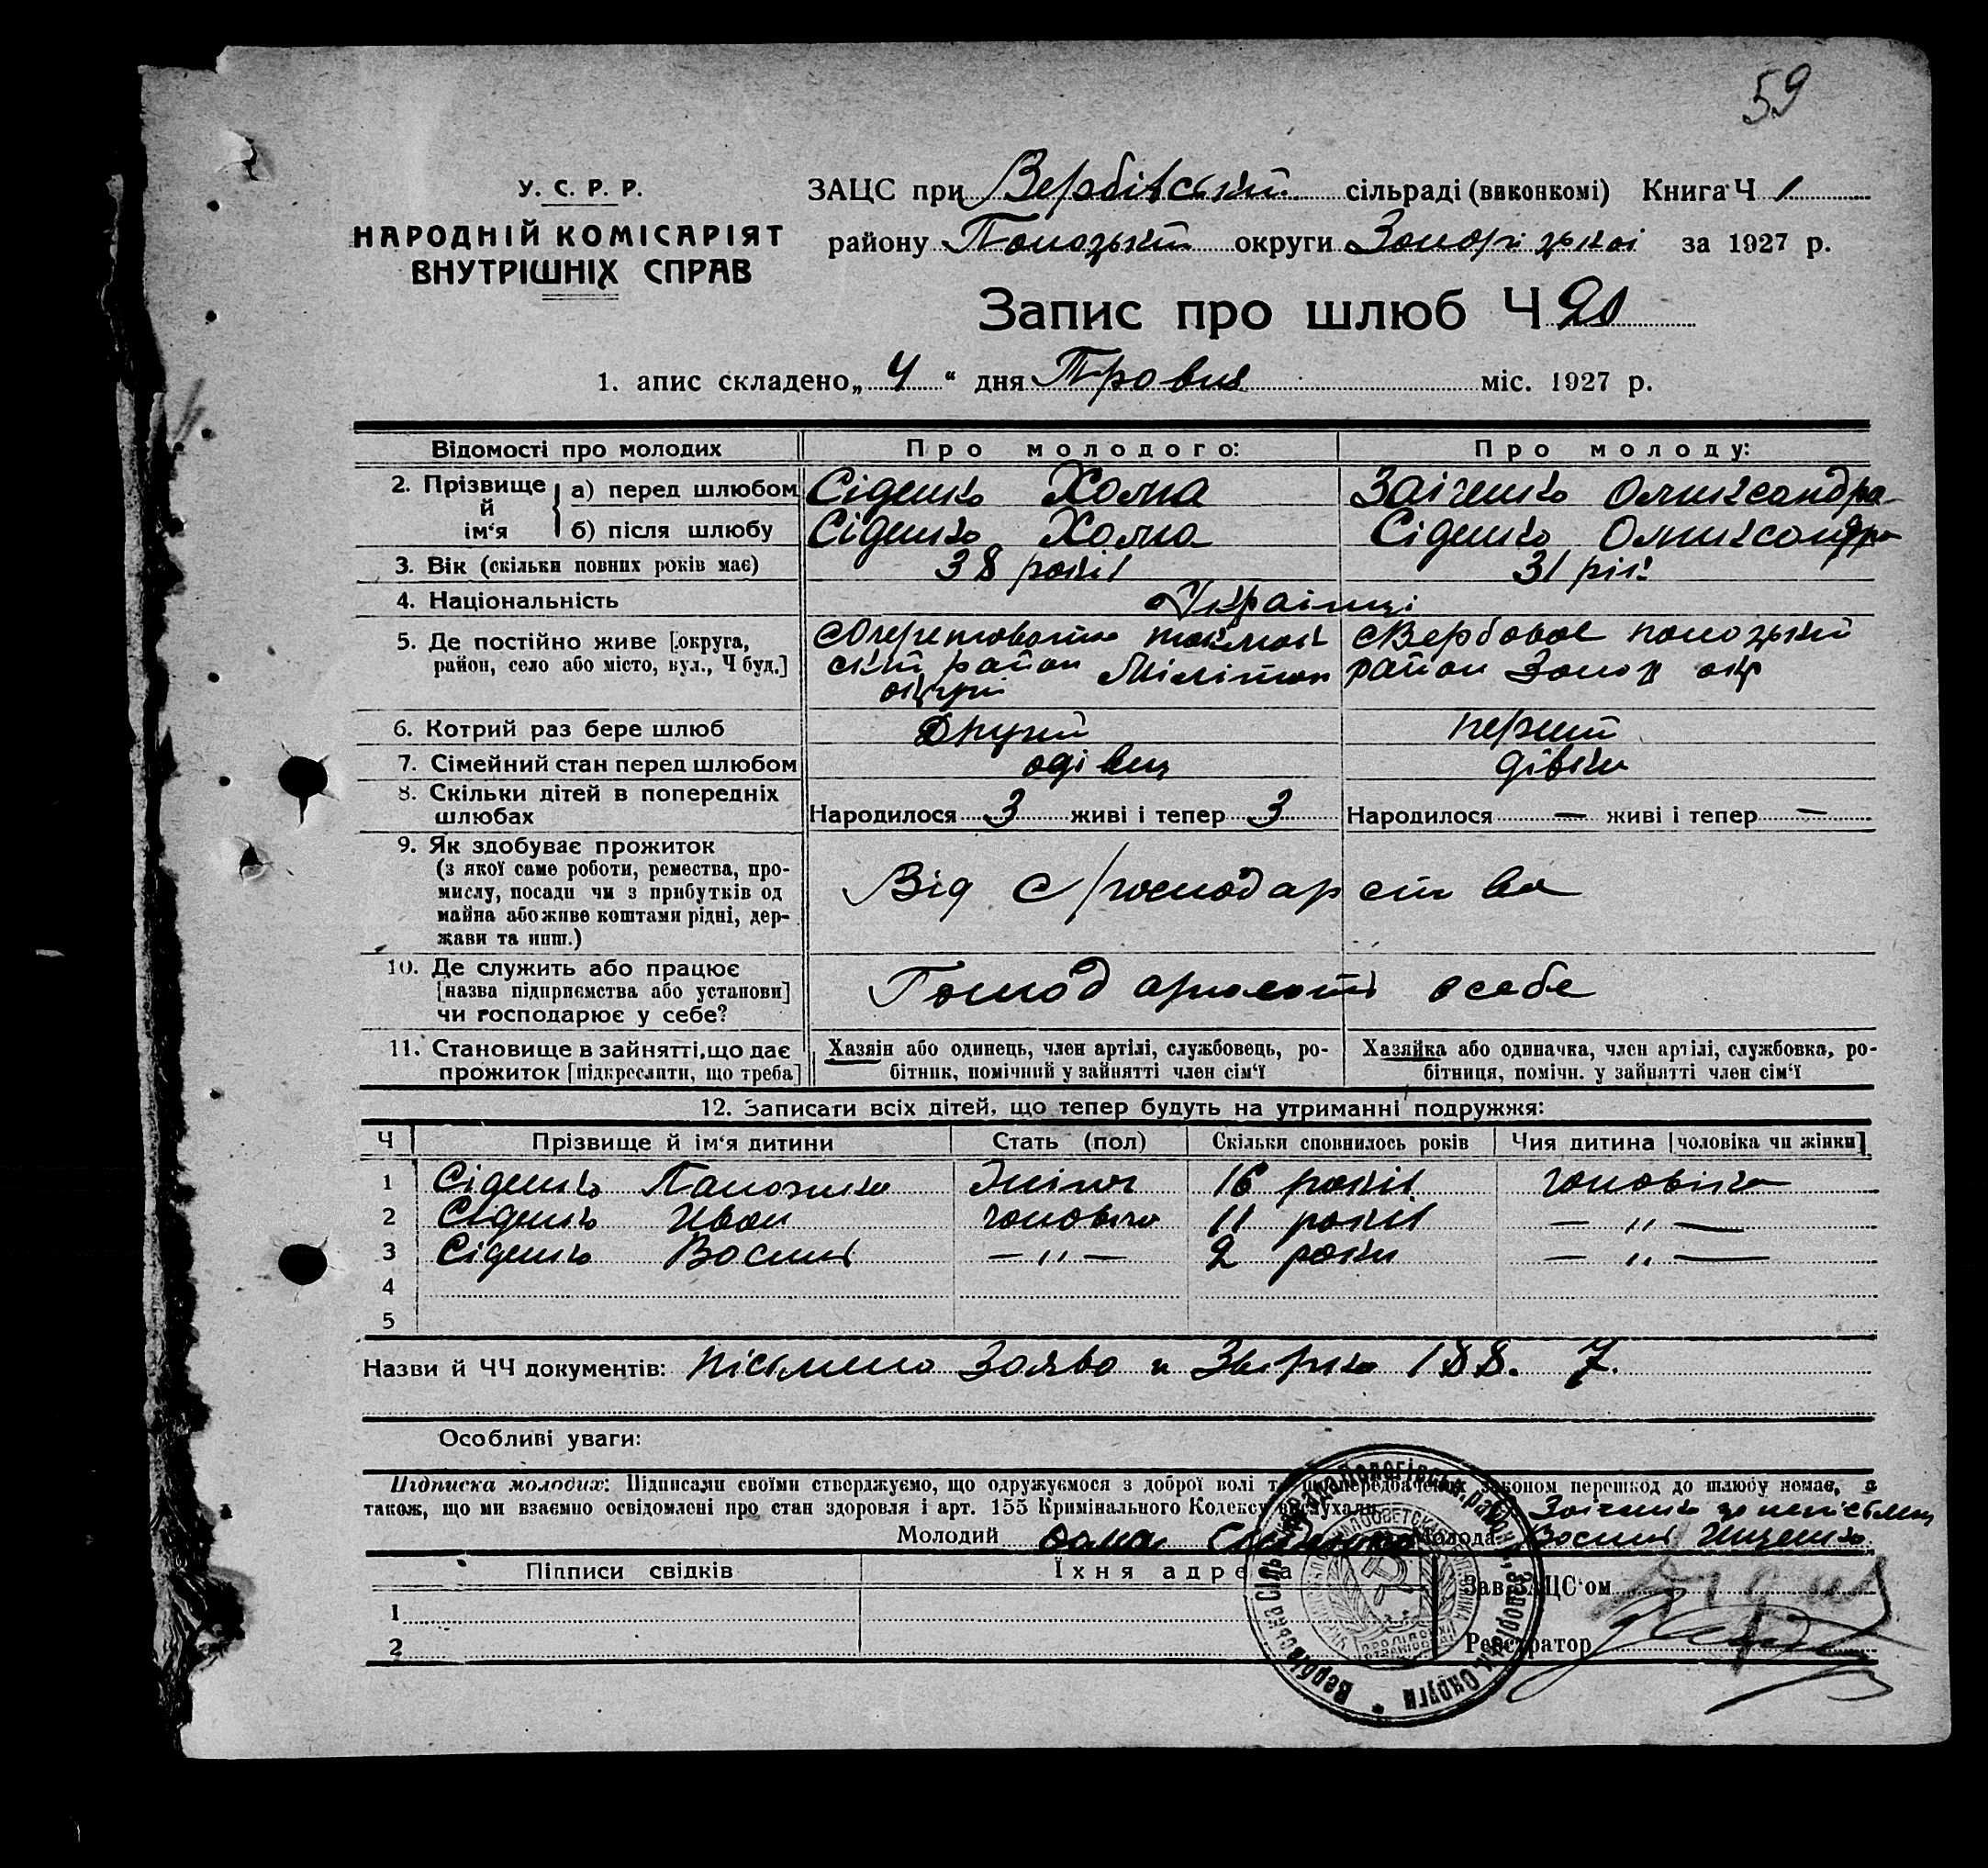 59
У. С. Р. Р.
НАРОДНІЙ КОМІСАРІЯТ
ВНУТРІШНІХ СПРАВ
ЗАЦС при Вербівській сільраді (виконкомі) Книга Ч 1
району Пологський округи Запорізької за 1927 р.
Запис про шлюб Ч 20
1. апис складено „ 4 “ дня Травня міс. 1927 р.
Відомості про молодих Про молодого: Про молоду:
2. Прізвище й ім‘я а) перед шлюбом Сіденко Хома Заіченко Олександра
б) після шлюбу Сіденко Хома Сіденко Олександра
3. Вік (скільки повних років має) 38 років 31 рік
4. Національність Украінці
5. Де постійно живе [округа, район, село або місто, вул., Ч буд.]
ський район Мелітоп район Запор окр
округи
6. Котрий раз бере шлюб Другий перший
7. Сімейний стан перед шлюбом одівец дівка
8. Скільки дітей в попередніх шлюбах Народилося 3 живі і тепер 3 Народилося — живі і тепер —
9. Як здобуває прожиток
(з якої саме роботи, ремества, про-
мислу, посади чи з прибутків од
майна або живе коштами рідні, дер-
жави та инш.)
Від с/господарства
10. Де служить або працює
[назва підприємства або установи]
чи господарює у себе?
особе
11. Становище в зайнятті, що дає
прожиток [підкреслити, що треба]
Хазяін або одинець, член артілі, службовець, ро-
бітник, помічний у зайнятті член сім‘ї
Хазяйка або одиначка, член артілі, службовка, ро-
бітниця, помічн. у зайнятті член сім‘ї
12. Записати всіх дітей, що тепер будуть на утриманні подружжя:
Ч Прізвище й ім‘я дитини Стать (пол) Скільки сповнилось років Чия дитина [чоловіка чи жінки]
1 Сіденко Палажка Жіноч 16 років чоловіка
2 Сіденко Иван чоловіча 11 років — „ —
3 Сіденко Василь — „ — 2 роки — „ —
4
5
Назви й ЧЧ документів: пісьмена Заява и 188. 7.
Особливі уваги:
Підписка молодих: Підписами своїми стверджуємо, що одружуємося з доброї волі та що передбачених законом перешкод до шлюбу немає, а
також, що ми взаємно освідомлені про стан здоровля і арт. 155 Кримінального Кодексу вислухали.
Заіченко за непісьмен
Молодий Хома Сиденко Молода Василь Ищенко
Підписи свідків Їхня адреса Зав. ЗАЦС‘ом
1
2 Реєстратор
Вербівська Сільська Рада Пологівськ. району, Запоріжськ. Округи